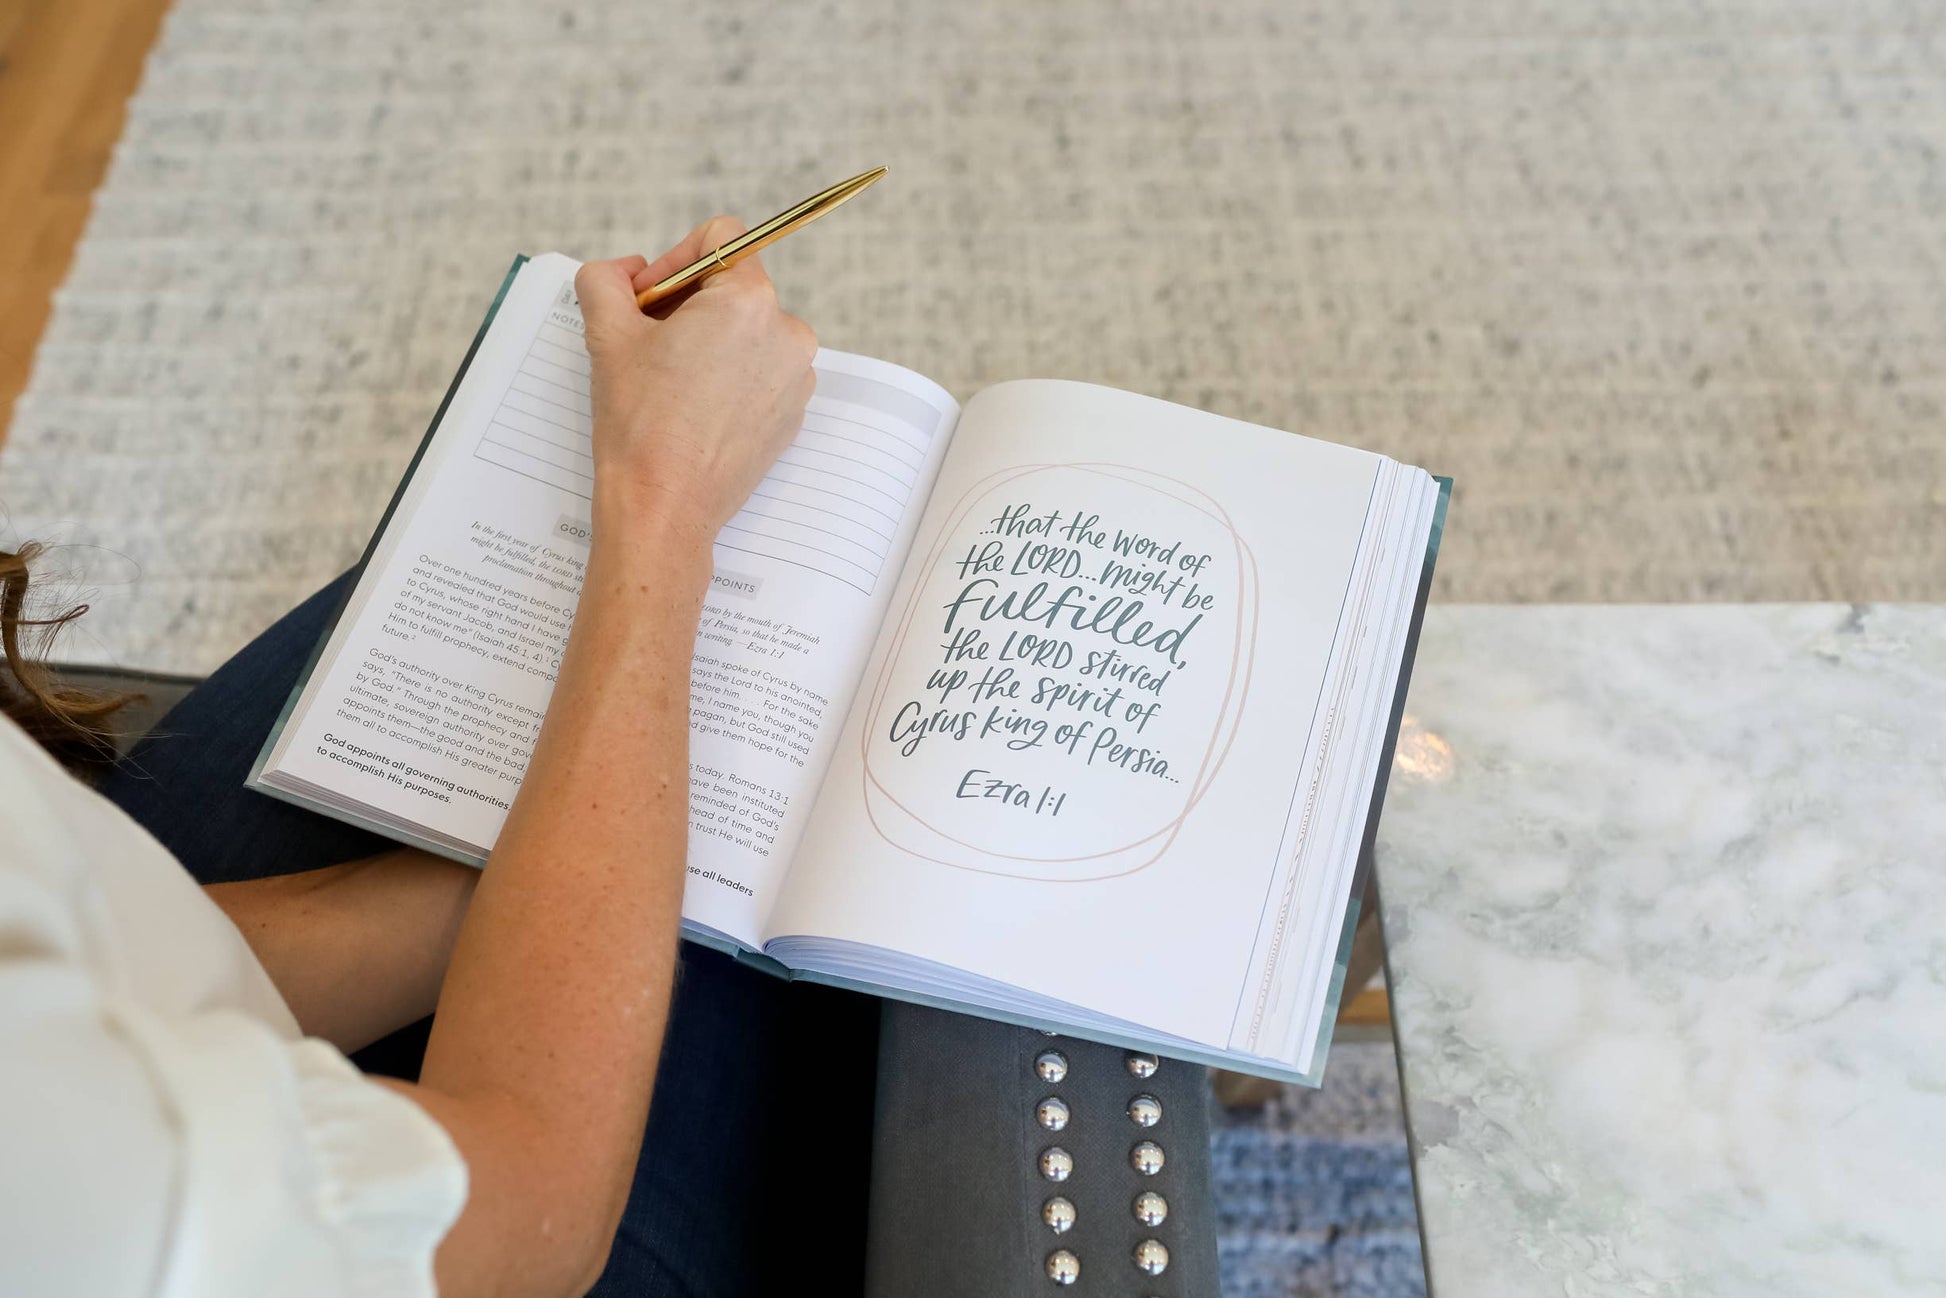 DAY
NOTES
GOD'S
PPOINTS
In the first year of Cyrus king
LORD by the mouth of Jeremiah
might be fulfilled, the LORD
of Persia, so that he made a
proclamation throughout
writing. —Ezra 1:1
Over one hundred years before
Isaiah spoke of Cyrus by name
and revealed that God would use
says the Lord to his anointed,
to Cyrus, whose right hand I have
before him. . . . For the sake
of my servant Jacob, and Israel my
me, I name you, though you
do not know me" (Isaiah 45:1, 4).¹
pagan, but God still used
Him to fulfill prophecy, extend
give them hope for the
future.²
God's authority over King Cyrus
today. Romans 13:1
says, "There is no authority except
have been instituted
by God." Through the prophecy and
reminded of God's
ultimate, sovereign authority over
ahead of time and
appoints them—the good and the bad
trust He will use
them all to accomplish His greater
God appoints all governing authorities,
use all leaders
to accomplish His purposes.
...that the word of
the LORD...might be
fulfilled,
the LORD stirred
up the spirit of
Cyrus king of Persia...
Ezra 1:1